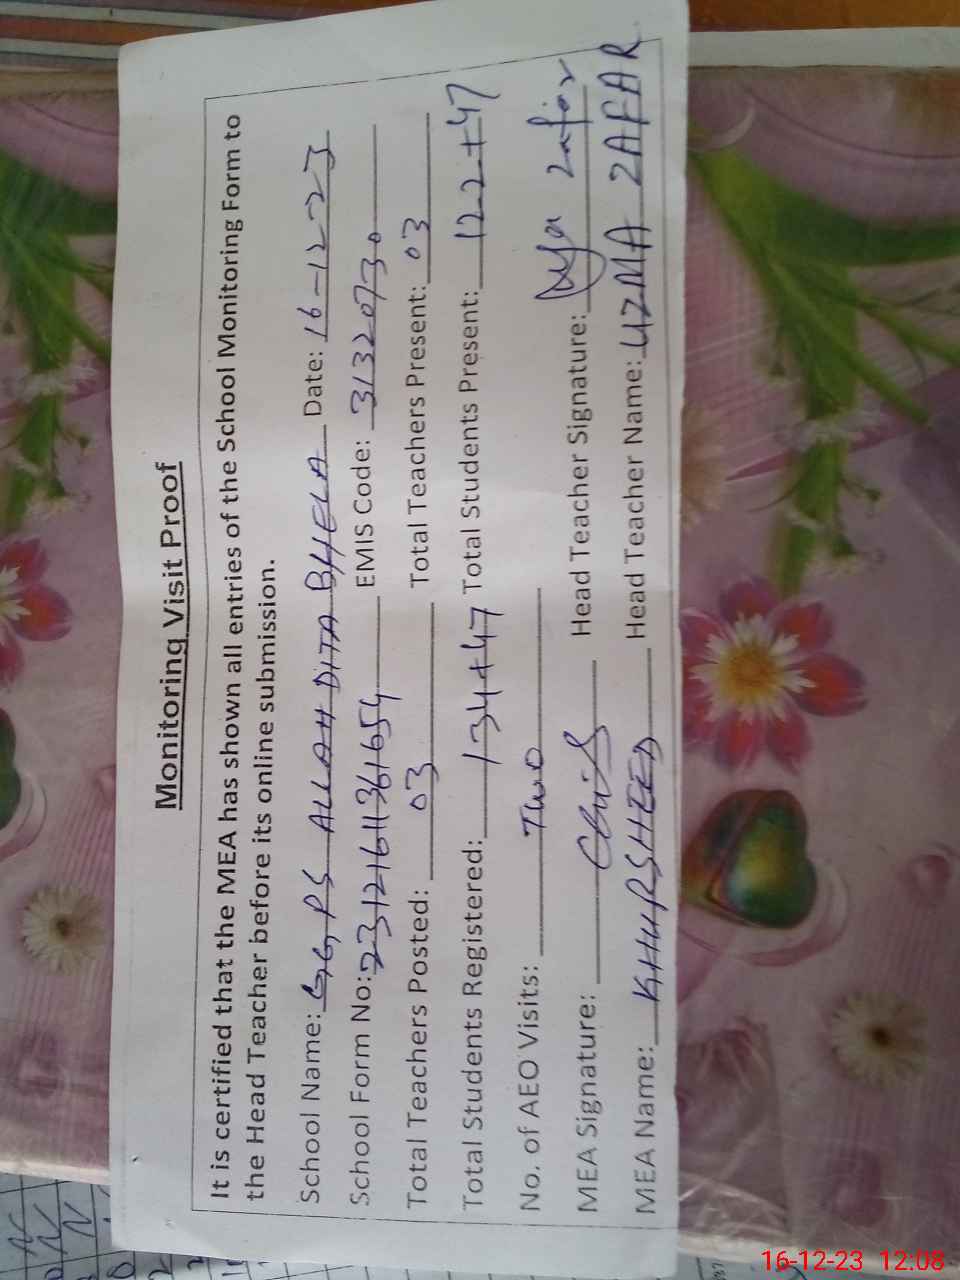 Monitoring Visit Proof
It is certified that the MEA has shown all entries of the School Monitoring Form to
the Head Teacher before its online submission.
School Name: GGPS ALLAH DITA BHELA Date: 16-12-23
School Form No: 23121611361654 EMIS Code: 31320730
Total Teachers Posted: 03 Total Teachers Present: 03
Total Students Registered: 134+47 Total Students Present: 122+47
No. of AEO Visits: Two
MEA Signature: Head Teacher Signature: Zafar
MEA Name: KHURSHEED Head Teacher Name: UZMA ZAFAR
16-12-23 12:08